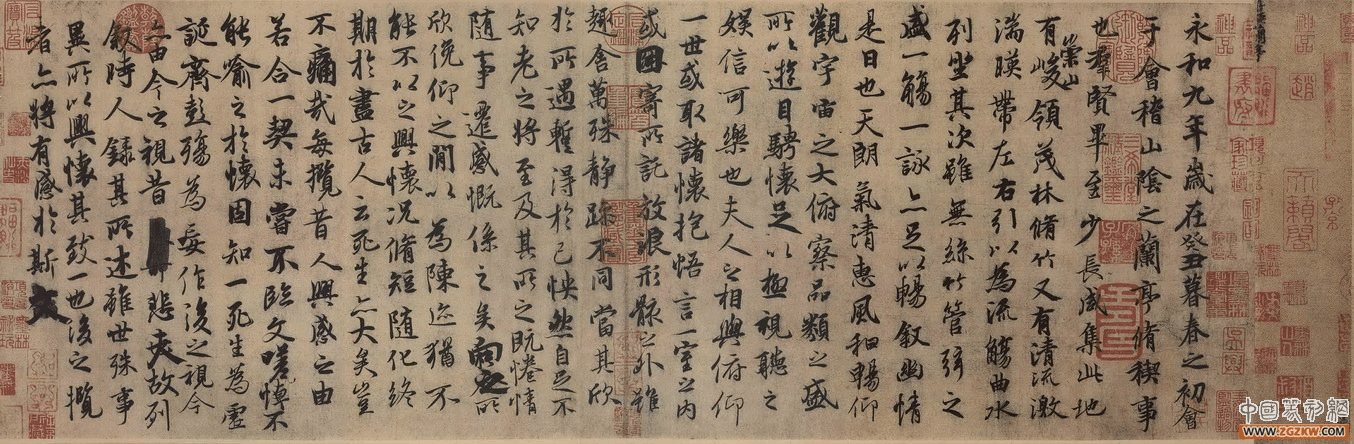 神品
天籟閣
子京
永和九年歲在癸丑暮春之初會
于會稽山陰之蘭亭脩禊事
也羣賢畢至少長咸集此地
有崇山峻領茂林脩竹又有清流激
湍暎帶左右引以為流觴曲水
列坐其次雖無絲竹管弦之
盛一觴一詠亦足以暢叙幽情
是日也天朗氣清惠風和暢仰
觀宇宙之大俯察品類之盛
所以遊目騁懷足以極視聽之
娛信可樂也夫人之相與俯仰
一世或取諸懷抱悟言一室之內
或因寄所託放浪形骸之外雖
趣舍萬殊静躁不同當其欣
於所遇蹔得於己怏然自足不
知老之將至及其所之既惓情
隨事遷感慨係之矣向之所
欣俛仰之閒以為陳迹猶不
能不以之興懷況脩短隨化終
期於盡古人云死生亦大矣豈
不痛哉每攬昔人興感之由
若合一契未嘗不臨文嗟悼不
能喻之於懷固知一死生為虛
誕齊彭殤為妄作後之視今
亦由今之視昔悲夫故列
叙時人錄其所述雖世殊事
異所以興懷其致一也後之攬
者亦將有感於斯文
中国篆刻網
www.ZGZKW.com